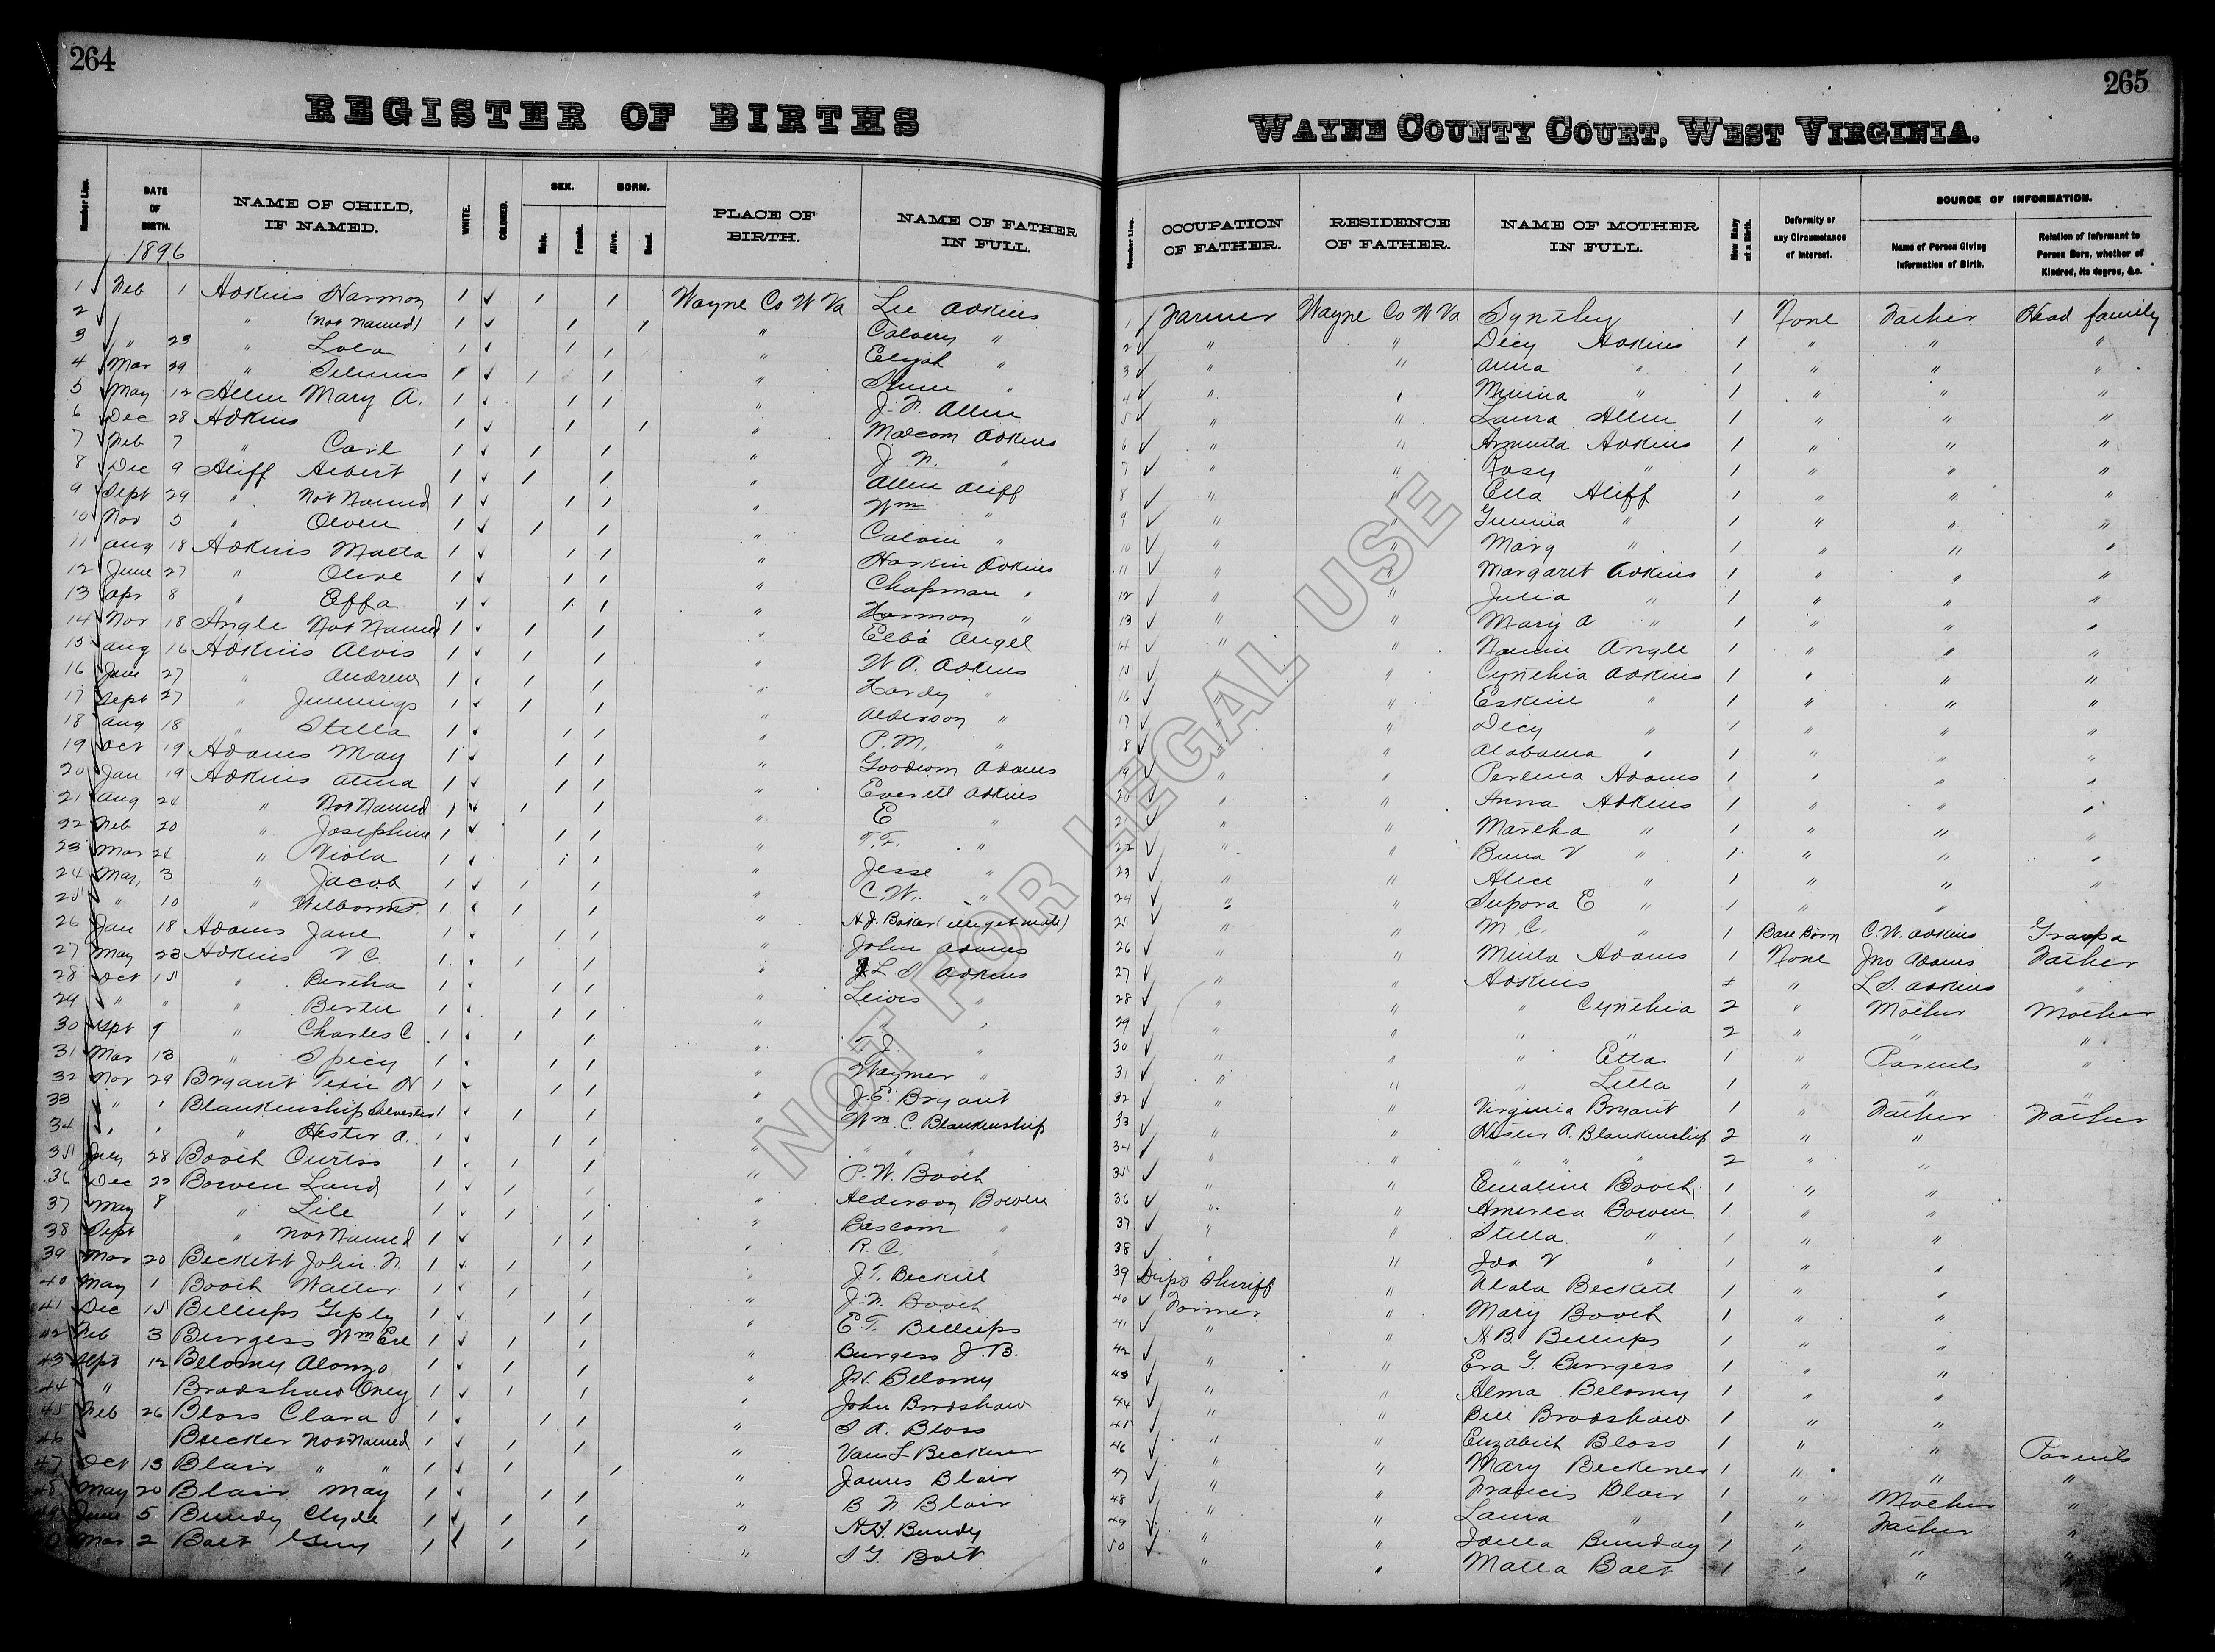 264
REGISTER OF BIRTHS
Number Line.
DATE OF BIRTH.
NAME OF CHILD, IF NAMED.
WHITE.
COLORED.
SEX.
Male.
Female.
BORN.
Alive.
Dead.
PLACE OF BIRTH.
NAME OF FATHER IN FULL.
1896
1 Feb 1 Adkins Harmon 1 ✓ 1 1 Wayne Co W Va Lee Adkins
2 " (Not Named) 1 ✓ 1 1 " Calvary "
3 " 23 " Lola 1 ✓ 1 1 " Elijah "
4 Mar 29 " 1 ✓ 1 1 " "
5 May 12 Allen Mary A. 1 ✓ 1 1 " J. F. Allen
6 Dec 28 Adkins 1 ✓ 1 1 " Malcom Adkins
7 Feb 7 " Carl 1 ✓ 1 1 " J. F. "
8 Dec 9 Aliff Albert 1 ✓ 1 1 " Allen Aliff
9 Sept 29 " Not Named 1 ✓ 1 1 " Wm "
10 Nov 5 " Olven 1 ✓ 1 1 " Calvin "
11 Aug 18 Adkins Matta 1 ✓ 1 1 " Harkin Adkins
12 June 27 " Olive 1 ✓ 1 1 " Chapman "
13 Apr 8 " Effa 1 ✓ 1 1 " Harmon "
14 Nov 18 Angle Not Named 1 ✓ 1 1 " Elba Angel
15 Aug 16 Adkins Alvis 1 ✓ 1 1 " W A. Adkins
16 June 27 " Andrew 1 ✓ 1 1 " Hardy "
17 Sept 27 " Jennings 1 ✓ 1 1 " Alderson "
18 Aug 18 " Stella 1 ✓ 1 1 " P. M. "
19 Oct 19 Adams May 1 ✓ 1 1 " Goodwin Adams
20 Jan 19 Adkins Anna 1 ✓ 1 1 " Everett Adkins
21 Aug 24 " Not Named 1 ✓ 1 1 " E "
22 Feb 20 " Josephine 1 ✓ 1 1 " T. F. "
23 Mar 24 " Viola 1 ✓ 1 1 " Jesse "
24 Mar, 3 " Jacob 1 ✓ 1 1 " C. W. "
25 " 10 " Welborn 1 ✓ 1 1 " A. J. Baker (illegetimate)
26 Jan 18 Adams Jane 1 ✓ 1 1 " John Adams
27 May 23 Adkins V C. 1 ✓ 1 1 " L S Adkins
28 Oct 15 " Bertha 1 ✓ 1 1 " Lewis "
29 " " " Bertie 1 ✓ 1 1 " " "
30 Sept 9 " Charles C. 1 ✓ 1 1 " T. J. "
31 Mar 13 " Spicy 1 ✓ 1 1 " Waymer "
32 Nov 29 Bryant N 1 ✓ 1 1 " J. E. Bryant
33 " 1 Blankenship Silvester 1 ✓ 1 1 " Wm. C. Blankenship
34 " " " Hester A. 1 ✓ 1 1 " " " "
35 July 28 Booth Curtis 1 ✓ 1 1 " P. W. Booth
36 Dec 22 Bowen Land 1 ✓ 1 1 " Alderson Bowen
37 May 8 " Lile 1 ✓ 1 1 " Bascom "
38 Sept " Not Named 1 ✓ 1 1 " R. C. "
39 Mar 20 Beckett John. F. 1 ✓ 1 1 " J. T. Beckett
40 May 1 Booth Walter 1 ✓ 1 1 " J. F. Booth
41 Dec 15 Billups 1 ✓ 1 1 " E T. Billups
42 Feb 3 Burgess Wm 1 ✓ 1 1 " Burgess J. B.
43 Sept 12 Belomy Alonzo 1 ✓ 1 1 " J. W. Belomy
44 " Bradshaw Oney 1 ✓ 1 1 " John Bradshaw
45 Feb 26 Bloss Clara 1 ✓ 1 1 " S A. Bloss
46 Not Named 1 ✓ 1 1 " Van L Beckner
47 Oct 13 Blair " " 1 ✓ 1 1 " James Blair
48 May 20 Blair May 1 ✓ 1 1 " B F. Blair
49 June 5 Bundy Clyde 1 ✓ 1 1 " A. H. Bundy
50 Mar 2 Bolt 1 ✓ 1 1 " S G. Bolt
265
WAYNE COUNTY COURT, WEST VIRGINIA.
Number Line.
OCCUPATION OF FATHER.
RESIDENCE OF FATHER.
NAME OF MOTHER IN FULL.
How Many at a Birth.
Deformity or any Circumstance of Interest.
SOURCE OF INFORMATION.
Name of Person Giving Information of Birth.
Relation of Informant to Person Born, whether of Kindred, its degree, &c.
1 ✓ Farmer Wayne Co W Va Synthy 1 None Father Head family
2 ✓ " " Dicy Adkins 1 " " "
3 ✓ " " Anna " 1 " " "
4 ✓ " " " 1 " " "
5 ✓ " " Laura Allen 1 " " "
6 ✓ " " Arminta Adkins 1 " " "
7 ✓ " " Rosy " 1 " " "
8 ✓ " " Ella Aliff 1 " " "
9 ✓ " " " 1 " " "
10 ✓ " " Mary " 1 " " "
11 ✓ " " Margaret Adkins 1 " " "
12 ✓ " " Julia " 1 " " "
13 ✓ " " Mary A " 1 " " "
14 ✓ " " Nannie Angle 1 " " "
15 ✓ " " Cynthia Adkins 1 " " "
16 ✓ " " Eskine " 1 " " "
17 ✓ " " Dicy " 1 " " "
18 ✓ " " Alabama " 1 " " "
19 ✓ " " Perlina Adams 1 " " "
20 ✓ " " Anna Adkins 1 " " "
21 ✓ " " Martha " 1 " " "
22 ✓ " " Buna V " 1 " " "
23 ✓ " " Alice " 1 " " "
24 ✓ " " Supora E " 1 " " "
25 ✓ " " M. C. " 1 Base Born C. W. Adkins Granpa
26 ✓ " " Minta Adams 1 None Jno Adams Father
27 ✓ " " Adkins 1 " L S. Adkins "
28 ✓ " " " Cynthia 2 " Mother Mother
29 ✓ " " " " 2 " " "
30 ✓ " " " Etta 1 " Parents "
31 ✓ " " " Litta 1 " " "
32 ✓ " " Virginia Bryant 1 " Father Father
33 ✓ " " Hester A. Blankenship 2 " "
34 ✓ " " " " " 2 " "
35 ✓ " " Emaline Booth 1 " "
36 ✓ " " America Bowen 1 " "
37 ✓ " " Stella " 1 " "
38 ✓ " " Ida V " 1 " "
39 Depo Sheriff " Beckett 1 " "
40 ✓ Farmer " Mary Booth 1 " "
41 ✓ " " A B. Billups 1 " "
42 ✓ " " Era G. Burgess 1 " "
43 ✓ " " Alma Belomy 1 " "
44 ✓ " " Bell Bradshaw 1 " "
45 ✓ " " Elizabeth Bloss 1 " "
46 ✓ " " Mary Beckener 1 " " Parents
47 ✓ " " Francis Blair 1 " " "
48 ✓ " " Laura " 1 " Mother "
49 ✓ " " Bunday 1 " Father "
50 ✓ " " Matta Bolt 1 " " "
NOT FOR LEGAL USE